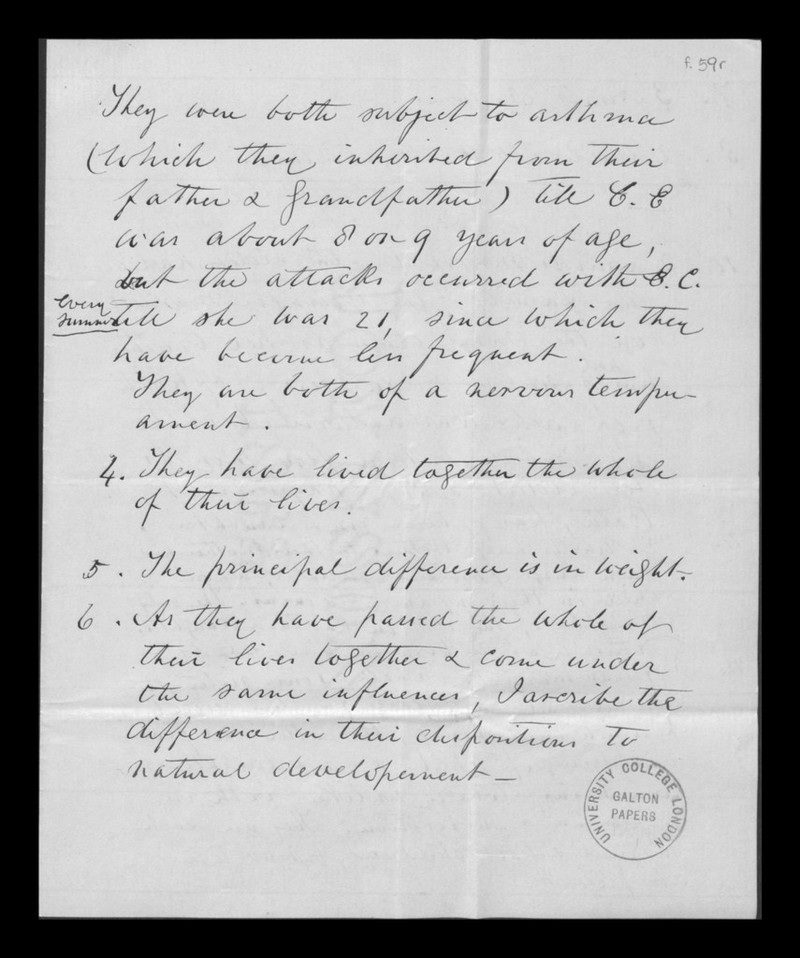 f. 59r
They were both subject to asthma
(which they inherited from their
father & grandfather) till C. E
was about 8 or 9 years of age,
but the attacks occurred with E. C.
every
summer
till she was 21, since which they
have become less frequent.
They are both of a nervous temper-
ament.
4. They have lived together the whole
of their lives.
5. The principal difference is in weight.
6. As they have passed the whole of
their lives together & come under
the same influences, I ascribe the
difference in their dispositions to
natural developement —
UNIVERSITY COLLEGE LONDON
GALTON
PAPERS